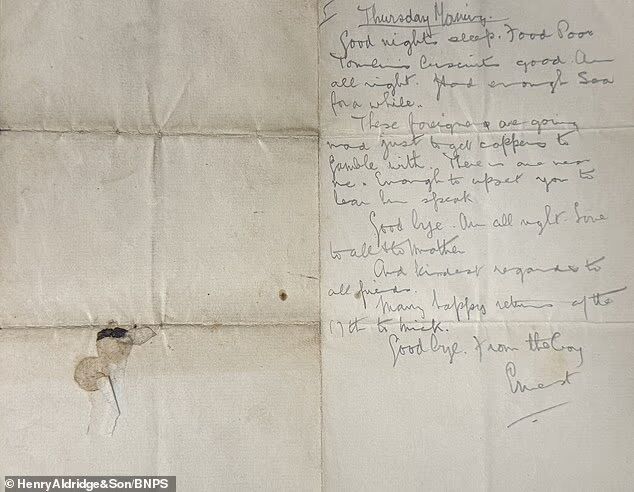 Thursday Morning.
Good nights sleep. Food Poor
good. Am
all right. Had enough Sea
for a while.
These foreigners are going
mad just to get coppers to
gamble with. There is one near
me. Enough to upset you to
hear him speak
Good bye. Am all right. Love
to all & to Mother
And kindest regards to
all friends.
Many happy returns of the
17th to Mick.
Good bye. From the boy
Ernest
HenryAldridge&Son/BNPS